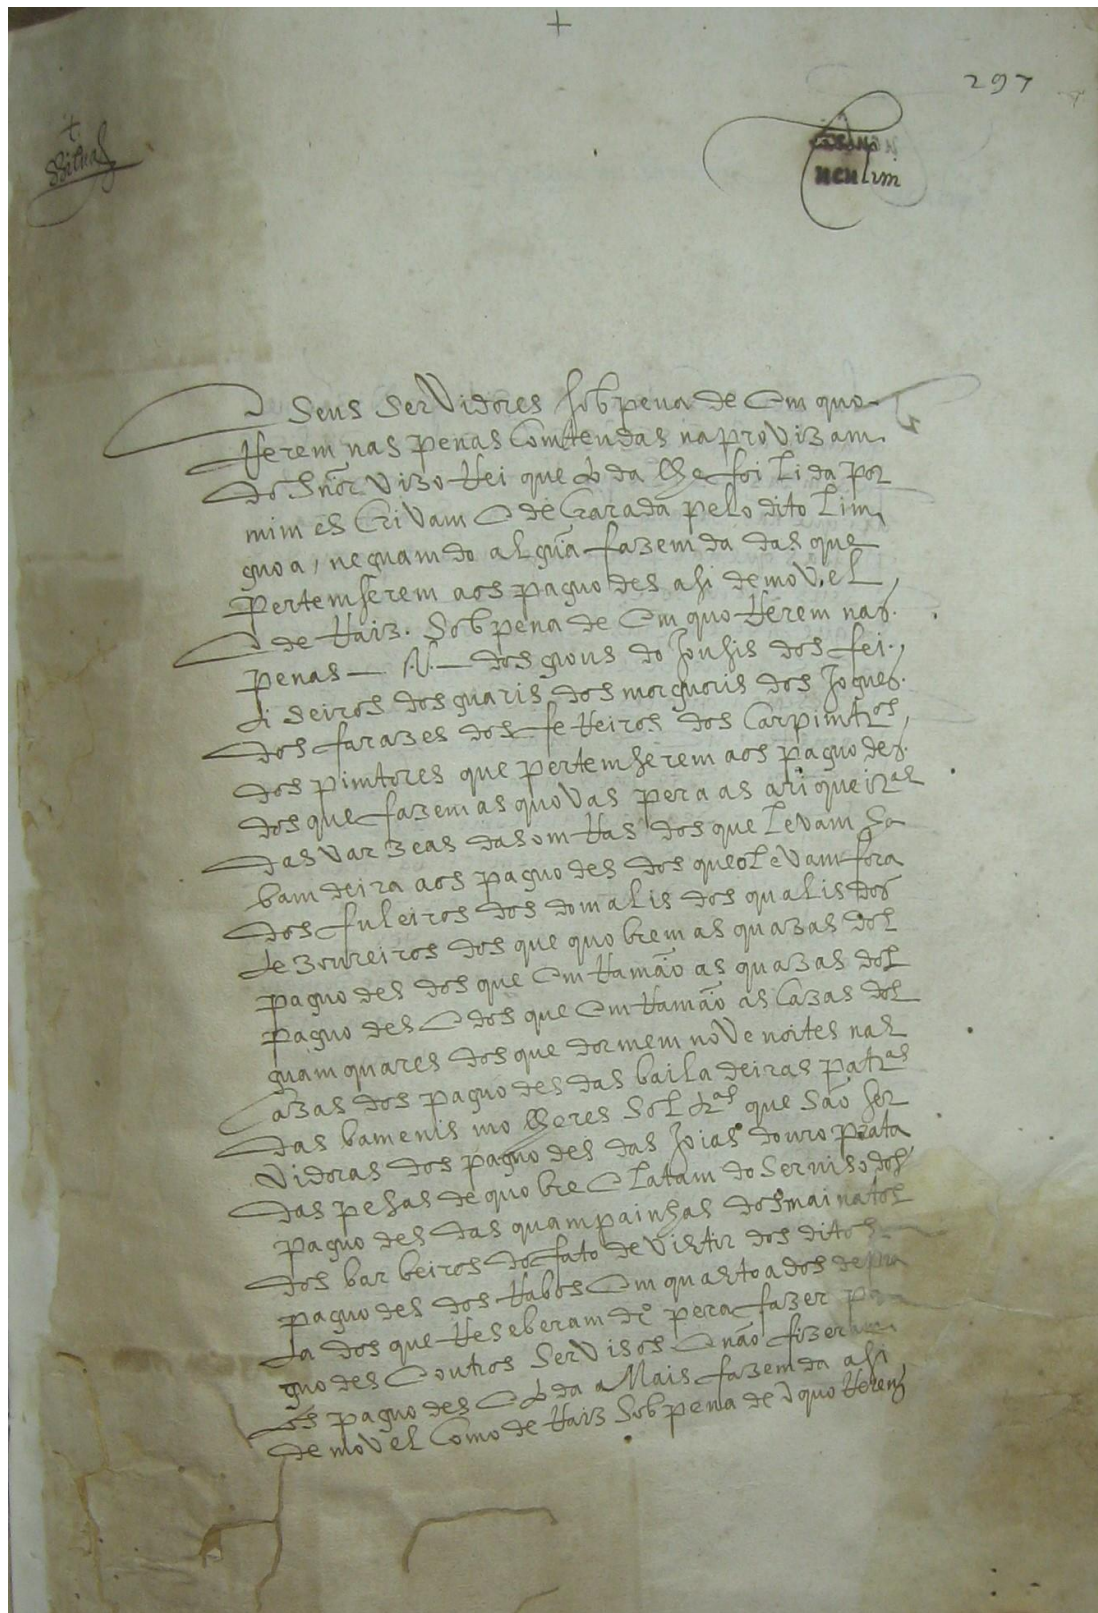 +
297
+
nculim
E Seus SerVidores sob pena de Em quo
Rerem nas penas Comtendas na proVizam
do Sñor Vizo Rei que toda lhe foi Lida por
mim esCriVam E deCrarada pelo dito Lim
goa, neguamdo algũa fazemda das que
pertemserem aos pagodes asi demoVel,
E de Raiz. Sob pena de Em quo Rerem nas
penas — .S. — dos gous do Jousis dos fei
ti seiros dos guaris dos morguoris dos Jogues
dos farazes dos feReiros dos Carpimtros,
dos pimtores que pertemserem aos pagodes
dos que fazem as quoVas pera as ariqueiras
das Varzeas dasomRas dos que LeVam ha
bamdeira aos pagodes dos que o LeVam fora
dos fuleiros dos domalis dos qualis dos
tezoureiros dos que quobrem as quazas dos
pagodes dos que EmRamão as quazas dos
pagodes E dos que EmRamão as Cazas dos
guamquares dos que dormem noVe noites nas
Cazas dos pagodes das bailadeiras
das bamenis molheres Soltras que São ser
Vidoras dos pagodes das Joias douro prata
das pesas de quobre E Latam do Serviso dos
pagodes das quampainhas dos mainatos
dos barbeiros do fato de Vistir dos ditos
pagodes dos Em quastoados
ta dos que Reseberam dro pera fazer pa
godes E outros SerVisos E não fizeram
os pagodes E toda a Mais fazemda asi
de moVel Como de Raiz Sob pena de Emquo Rerem